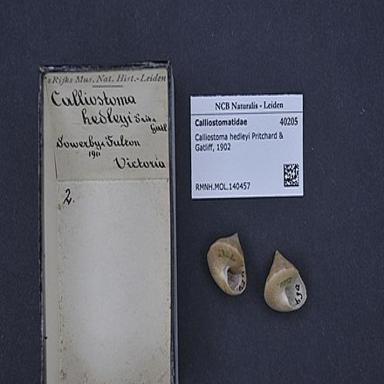 's Rijks Mus. Nat. Hist.-Leiden
Calliostoma
hedleyi
Sowerby & Fulton
Victoria
2.
NCB Naturalis - Leiden
Calliostomatidae 40205
Calliostoma hedleyi Pritchard &
Gatliff, 1902
RMNH.MOL.140457